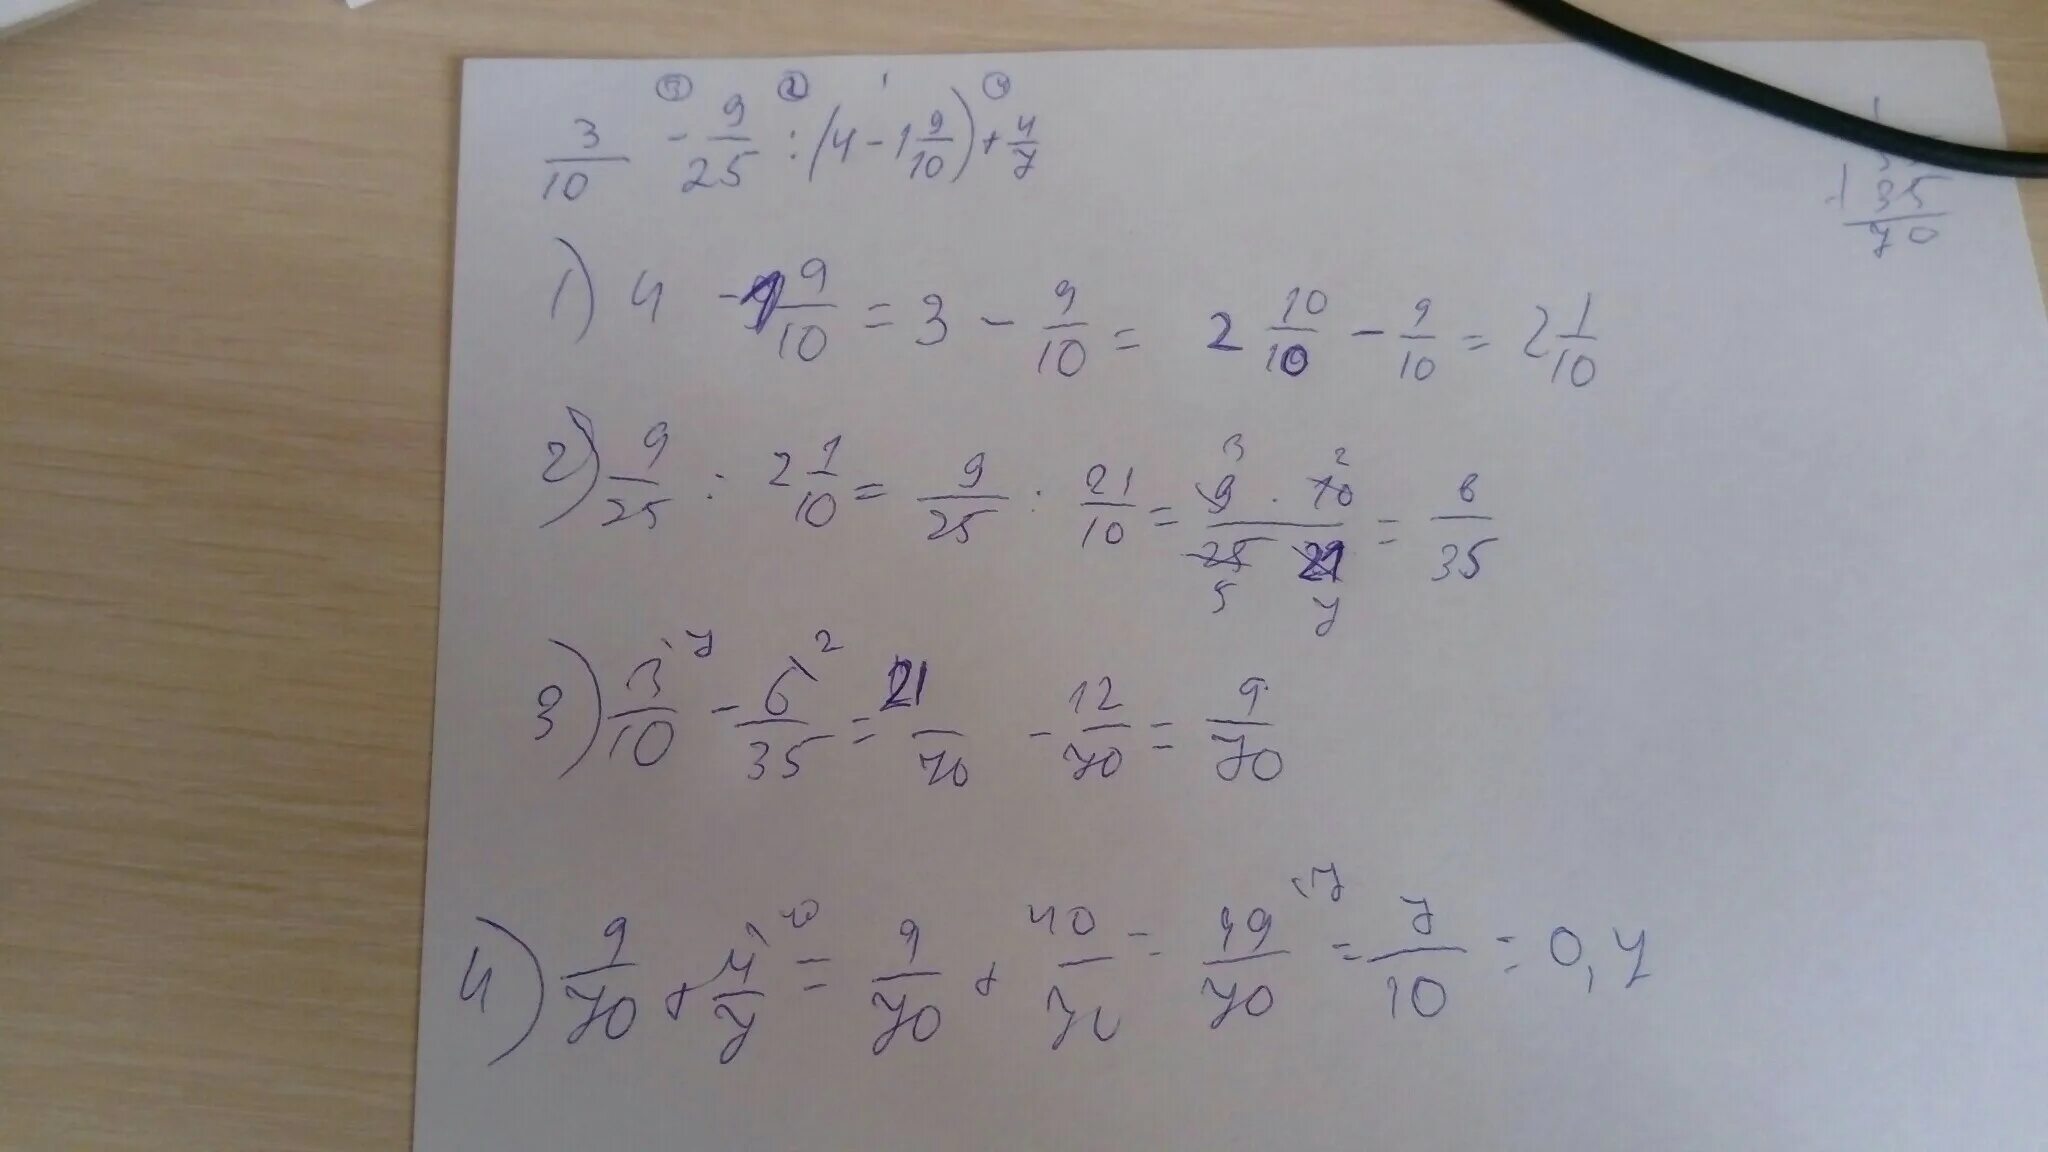 3 2 1 4
3/10 - 9/25 : (4 - 1 9/10) + 4/7
35
+ 35
70
1) 4 - 1 9/10 = 3 - 9/10 = 2 10/10 - 9/10 = 2 1/10
2) 9/25 : 2 1/10 = 9/25 : 21/10 = 9 3 · 10 2 / 25 5 21 7 = 6/35
3) 3/10 7 - 6/35 2 = 21/70 - 12/70 = 9/70
4) 9/70 + 4/7 10 = 9/70 + 40/70 = 49/70 :7 = 7/10 = 0,7